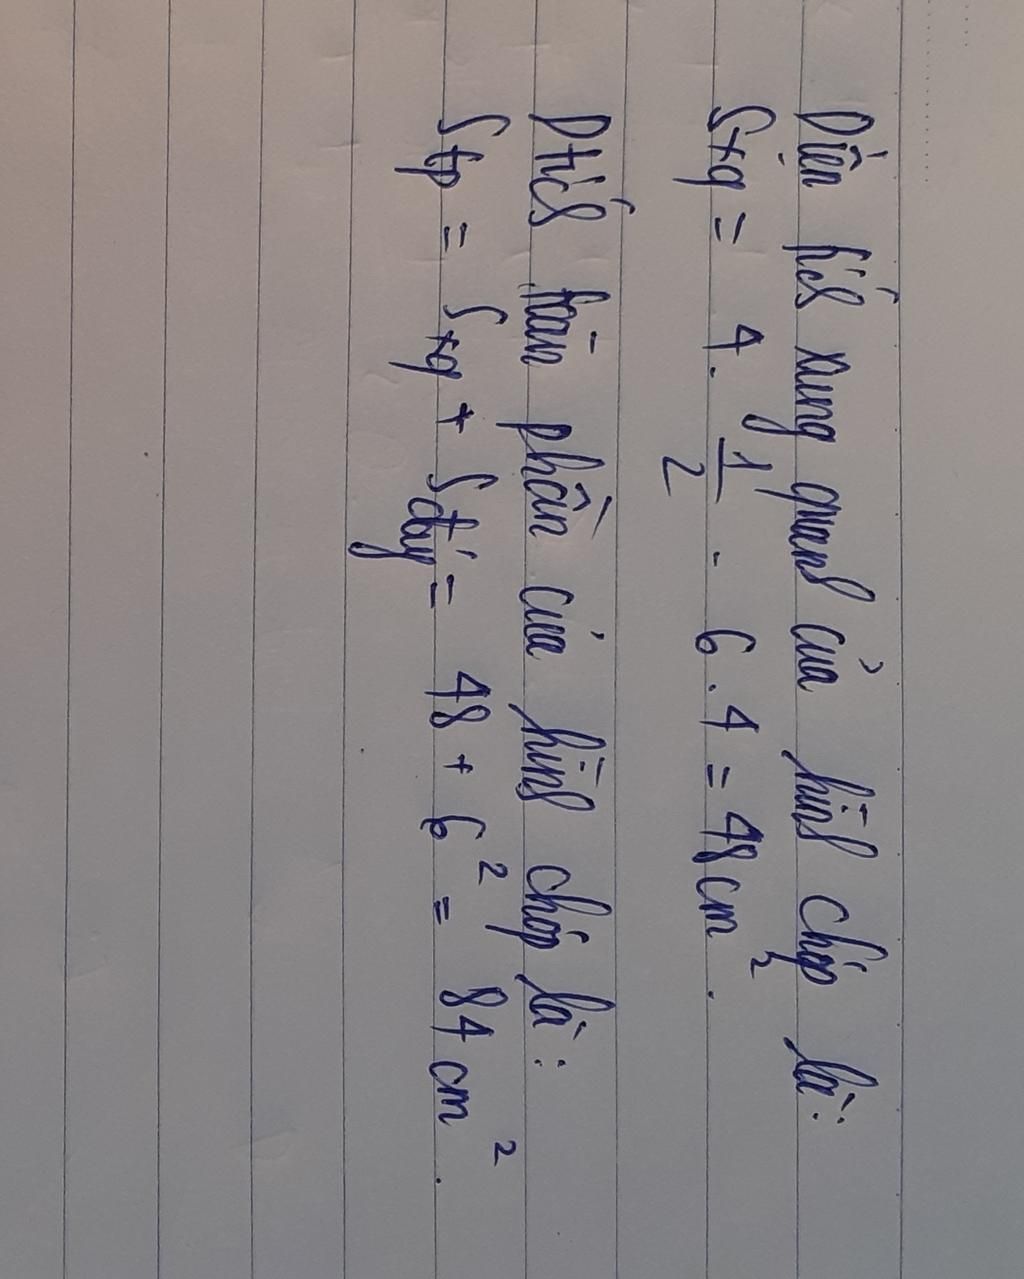 Diện tích xung quanh của hình chóp là:
Sxq = 4 . 1/2 . 6 . 4 = 48cm².
Dtích toàn phần của hình chóp là:
Stp = Sxq + Sđáy = 48 + 6² = 84 cm².